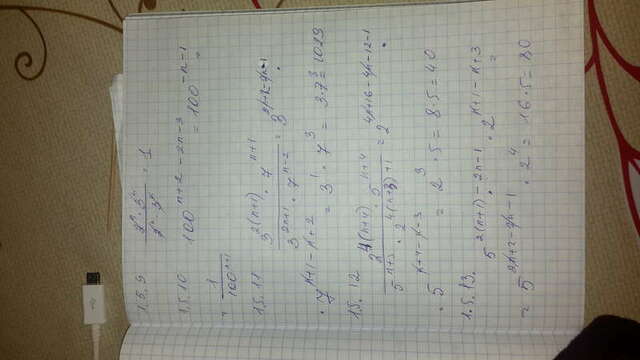 1.5.9 = 1
1.5.10 100^{n+2-2n-3} = 100^{-n-1} =
= \frac{1}{100^{n+1}}
1.5.11 \frac{3^{2(n+1)} · 7^{n+1}}{3^{2n+1} · 7^{n-2}} = 3
· 7^{n+1-n+2} = 3^1 · 7^3 = 3·7^3 = 1029
15.12 \frac{2^{4(n+4)} · 5^{n+4}}{5^{n+3} · 2^{4(n+3)+1}} = 2^{4n+16-4n-12-1} ·
· 5^{n+4-n-3} = 2^3 · 5 = 8·5 = 40
1.5.13. 5^{2(n+1)-2n-1} · 2^{n+1-n+3} =
= 5^{2n+2-2n-1} · 2^4 = 16·5 = 80